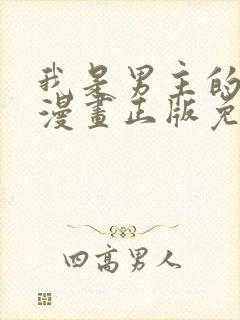 我是男主的
漫畫正版免
四高男人